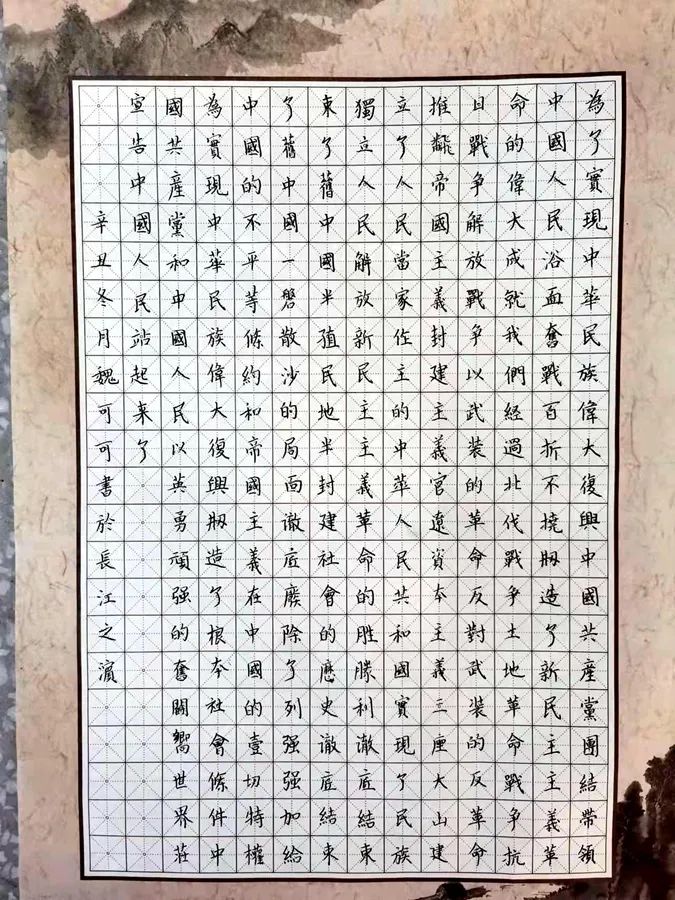 為了實現中華民族偉大復興中國共產黨團結帶領
中國人民浴血奮戰百折不撓刱造了新民主主義革
命的偉大成就我們經過北伐戰爭土地革命戰爭抗
日戰爭解放戰爭以武裝的革命反對武裝的反革命
推飜帝國主義封建主義官僚資夲主義三座大山建
立了人民當家作主的中華人民共和國實現了民族
獨立人民解放新民主主義革命的胜勝利澈底結束
束了舊中國半殖民地半封建社會的歷史澈底結束
了舊中國一磐散沙的局面澈底廢除了列强强加給
中國的不平等條約和帝國主義在中國的壹切特權
為實現中華民族偉大復興刱造了根夲社會條件中
國共產黨和中國人民以英勇頑强的奮鬭嚮世界莊
宣告中國人民站起来了
辛丑冬月魏可可書於長江之濵